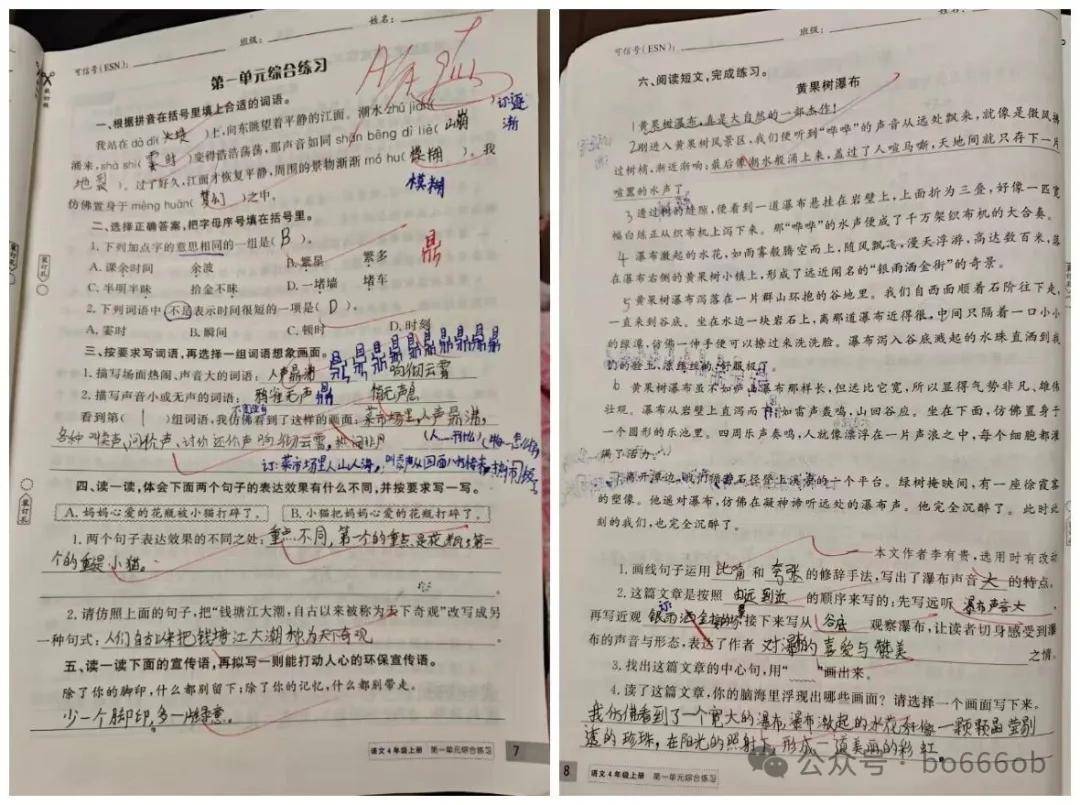 可信号(ESN)： 班级： 姓名：
第一单元综合练习
一、根据拼音在括号里填上合适的词语。
我站在dà dī(大堤)上，向东眺望着平静的江面。潮水zhú jiàn(
)涌来，shà shí(霎时)变得浩浩荡荡，那声音如同shān bēng dì liè(山崩
地裂)。过了好久，江面才恢复平静，周围的景物渐渐mó hu(模糊)，我
仿佛置身于mèng huàn(梦幻)之中。
订逐
渐
模糊
二、选择正确答案，把字母序号填在括号里。
1.下列加点字的意思相同的一组是(B)。
A.课余时间 余波 B.繁星 繁多
C.半明半昧 拾金不昧 D.一堵墙 堵车
鼎
2.下列词语中，不是表示时间很短的一项是(D)。
A.霎时 B.瞬间 C.顿时 D.时刻
三、按要求写词语，再选择一组词语想象画面。
鼎鼎鼎鼎鼎鼎鼎鼎鼎
1.描写场面热闹、声音大的词语：人声鼎沸 响彻云霄
2.描写声音小或无声的词语：鸦雀无声 悄无声息
看到第(1)组词语，我仿佛看到了这样的画面：菜市场里，人声鼎沸，
各种叫卖声、讨价还价声响彻云霄，热闹非凡
订：菜市场里人山人海，
四、读一读，体会下面两个句子的表达效果有什么不同，并按要求写一写。
A.妈妈心爱的花瓶被小猫打碎了。 B.小猫把妈妈心爱的花瓶打碎了。
1.两个句子表达效果的不同之处：重点不同，第一个的重点是花瓶，第二
个的重点是小猫。
2.请仿照上面的句子，把“钱塘江大潮，自古以来被称为天下奇观”改写成另
一种句式：人们自古以来把钱塘江大潮称为天下奇观
五、读一读下面的宣传语，再拟写一则能打动人心的环保宣传语。
除了你的脚印，什么都别留下；除了你的记忆，什么都别带走。
少一个脚印，多一片绿意。
语文4年级上册 第一单元综合练习 7
可信号(ESN)： 班级： 姓名：
六、阅读短文，完成练习。
黄果树瀑布
1黄果树瀑布，真是大自然的一部杰作！
2刚进入黄果树风景区，我们便听到“哗哗”的声音从远处飘来，就像是微风拂
过树梢，渐近渐响；最后像潮水般涌上来，盖过了人喧马嘶，天地间就只存下一片
喧嚣的水声了。
3透过树的缝隙，便看到一道瀑布悬挂在岩壁上，上面折为三叠，好像一匹宽
幅白练正从织布机上泻下来。那“哗哗”的水声便成了千万架织布机的大合奏。
4瀑布激起的水花，如雨雾般腾空而上，随风飘飞，漫天浮游，高达数百米，落
在瀑布右侧的黄果树小镇上，形成了远近闻名的“银雨洒金街”的奇景。
5黄果树瀑布泻落在一片群山环抱的谷地里。我们自西面顺着石阶往下走，
一直来到谷底。坐在水边一块岩石上，离那道瀑布近得很，中间只隔着一口小小
的绿潭，仿佛一伸手便可以撩过来洗洗脸。瀑布泻入谷底溅起的水珠直洒到我
们的脸上，凉丝丝的，舒服极了。
6黄果树瀑布虽不如庐山瀑布那样长，但远比它宽，所以显得气势非凡，雄伟
壮观。瀑布从岩壁上直泻而下，如雷声轰鸣，山回谷应。坐在下面，仿佛置身于
一个圆形的乐池里。四周乐声奏鸣，人就像漂浮在一片声浪之中，每个细胞都灌
满了活力。
离开潭边，我们循着石径登上溪旁的一个平台。绿树掩映间，有一座徐霞客
的塑像。他遥对瀑布，仿佛在凝神谛听远处的瀑布声。他完全沉醉了。此时此
刻的我们，也完全沉醉了。
——本文作者李有贵，选用时有改动
1.画线句子运用比喻和夸张的修辞手法，写出了瀑布声音大的特点。
2.这篇文章是按照由远到近的顺序来写的：先写远听瀑布声音大，
再写近观银雨洒金街，接下来写从谷底观察瀑布，让读者切身感受到瀑
布的声音与形态，表达了作者对瀑布的喜爱与赞美之情。
3.找出这篇文章的中心句，用“﹏﹏”画出来。
4.读了这篇文章，你的脑海里浮现出哪些画面？请选择一个画面写下来。
我仿佛看到了一个宽大的瀑布，瀑布激起的水花好像一颗颗晶莹剔
透的珍珠，在阳光的照射下，形成一道美丽的彩虹。
8 语文4年级上册 第一单元综合练习
公众号·bo666ob